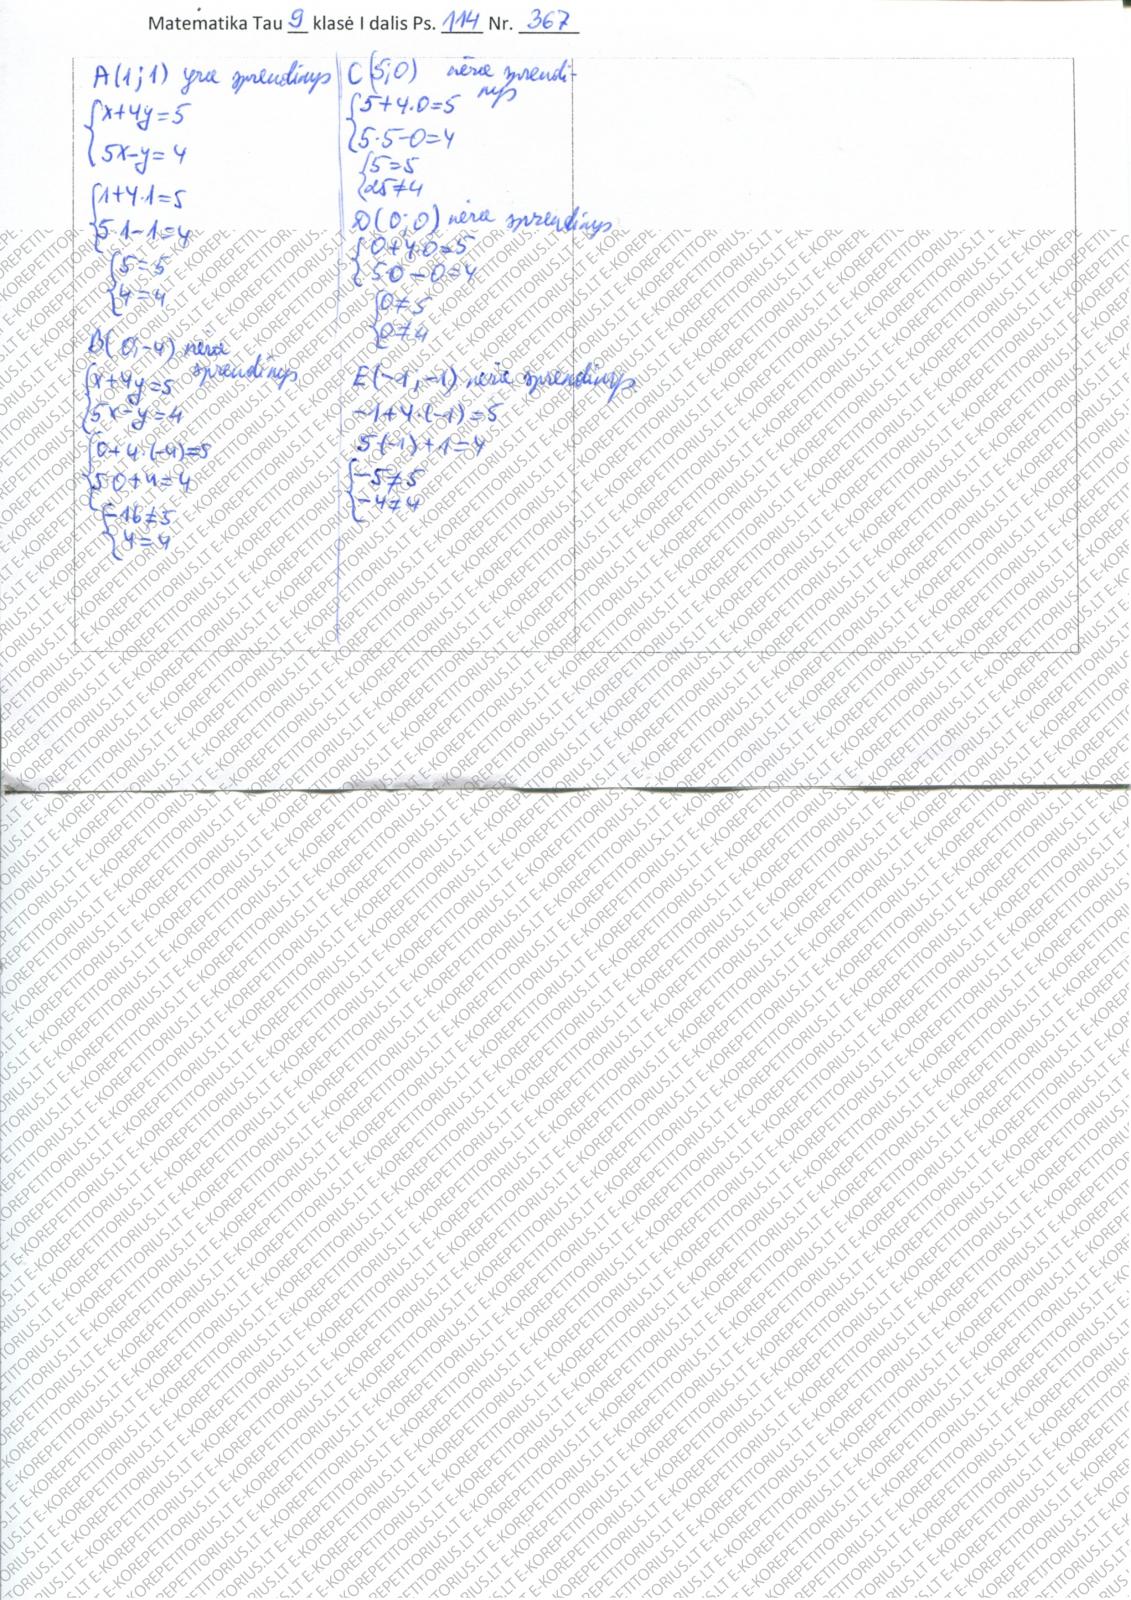 Matematika Tau 9 klasė I dalis Ps. 114 Nr. 367
A(1;1) yra sprendinys
{x+4y=5
{5x-y=4
{1+4·1=5
{5·1-1=4
{5=5
{4=4
B(0;-4) nėra
sprendinys
{x+4y=5
{5x-y=4
{0+4·(-4)=5
{5·0+4=4
{-16≠5
{4=4
C(5;0) nėra sprendi-
nys
{5+4·0=5
{5·5-0=4
{5=5
{25≠4
D(0;0) nėra sprendinys
{0+4·0=5
{5·0-0=4
{0≠5
{0≠4
E(-1;-1) nėra sprendinys
-1+4·(-1)=5
5·(-1)+1=4
{-5≠5
{-4≠4
E-KOREPETITORIUS.LT